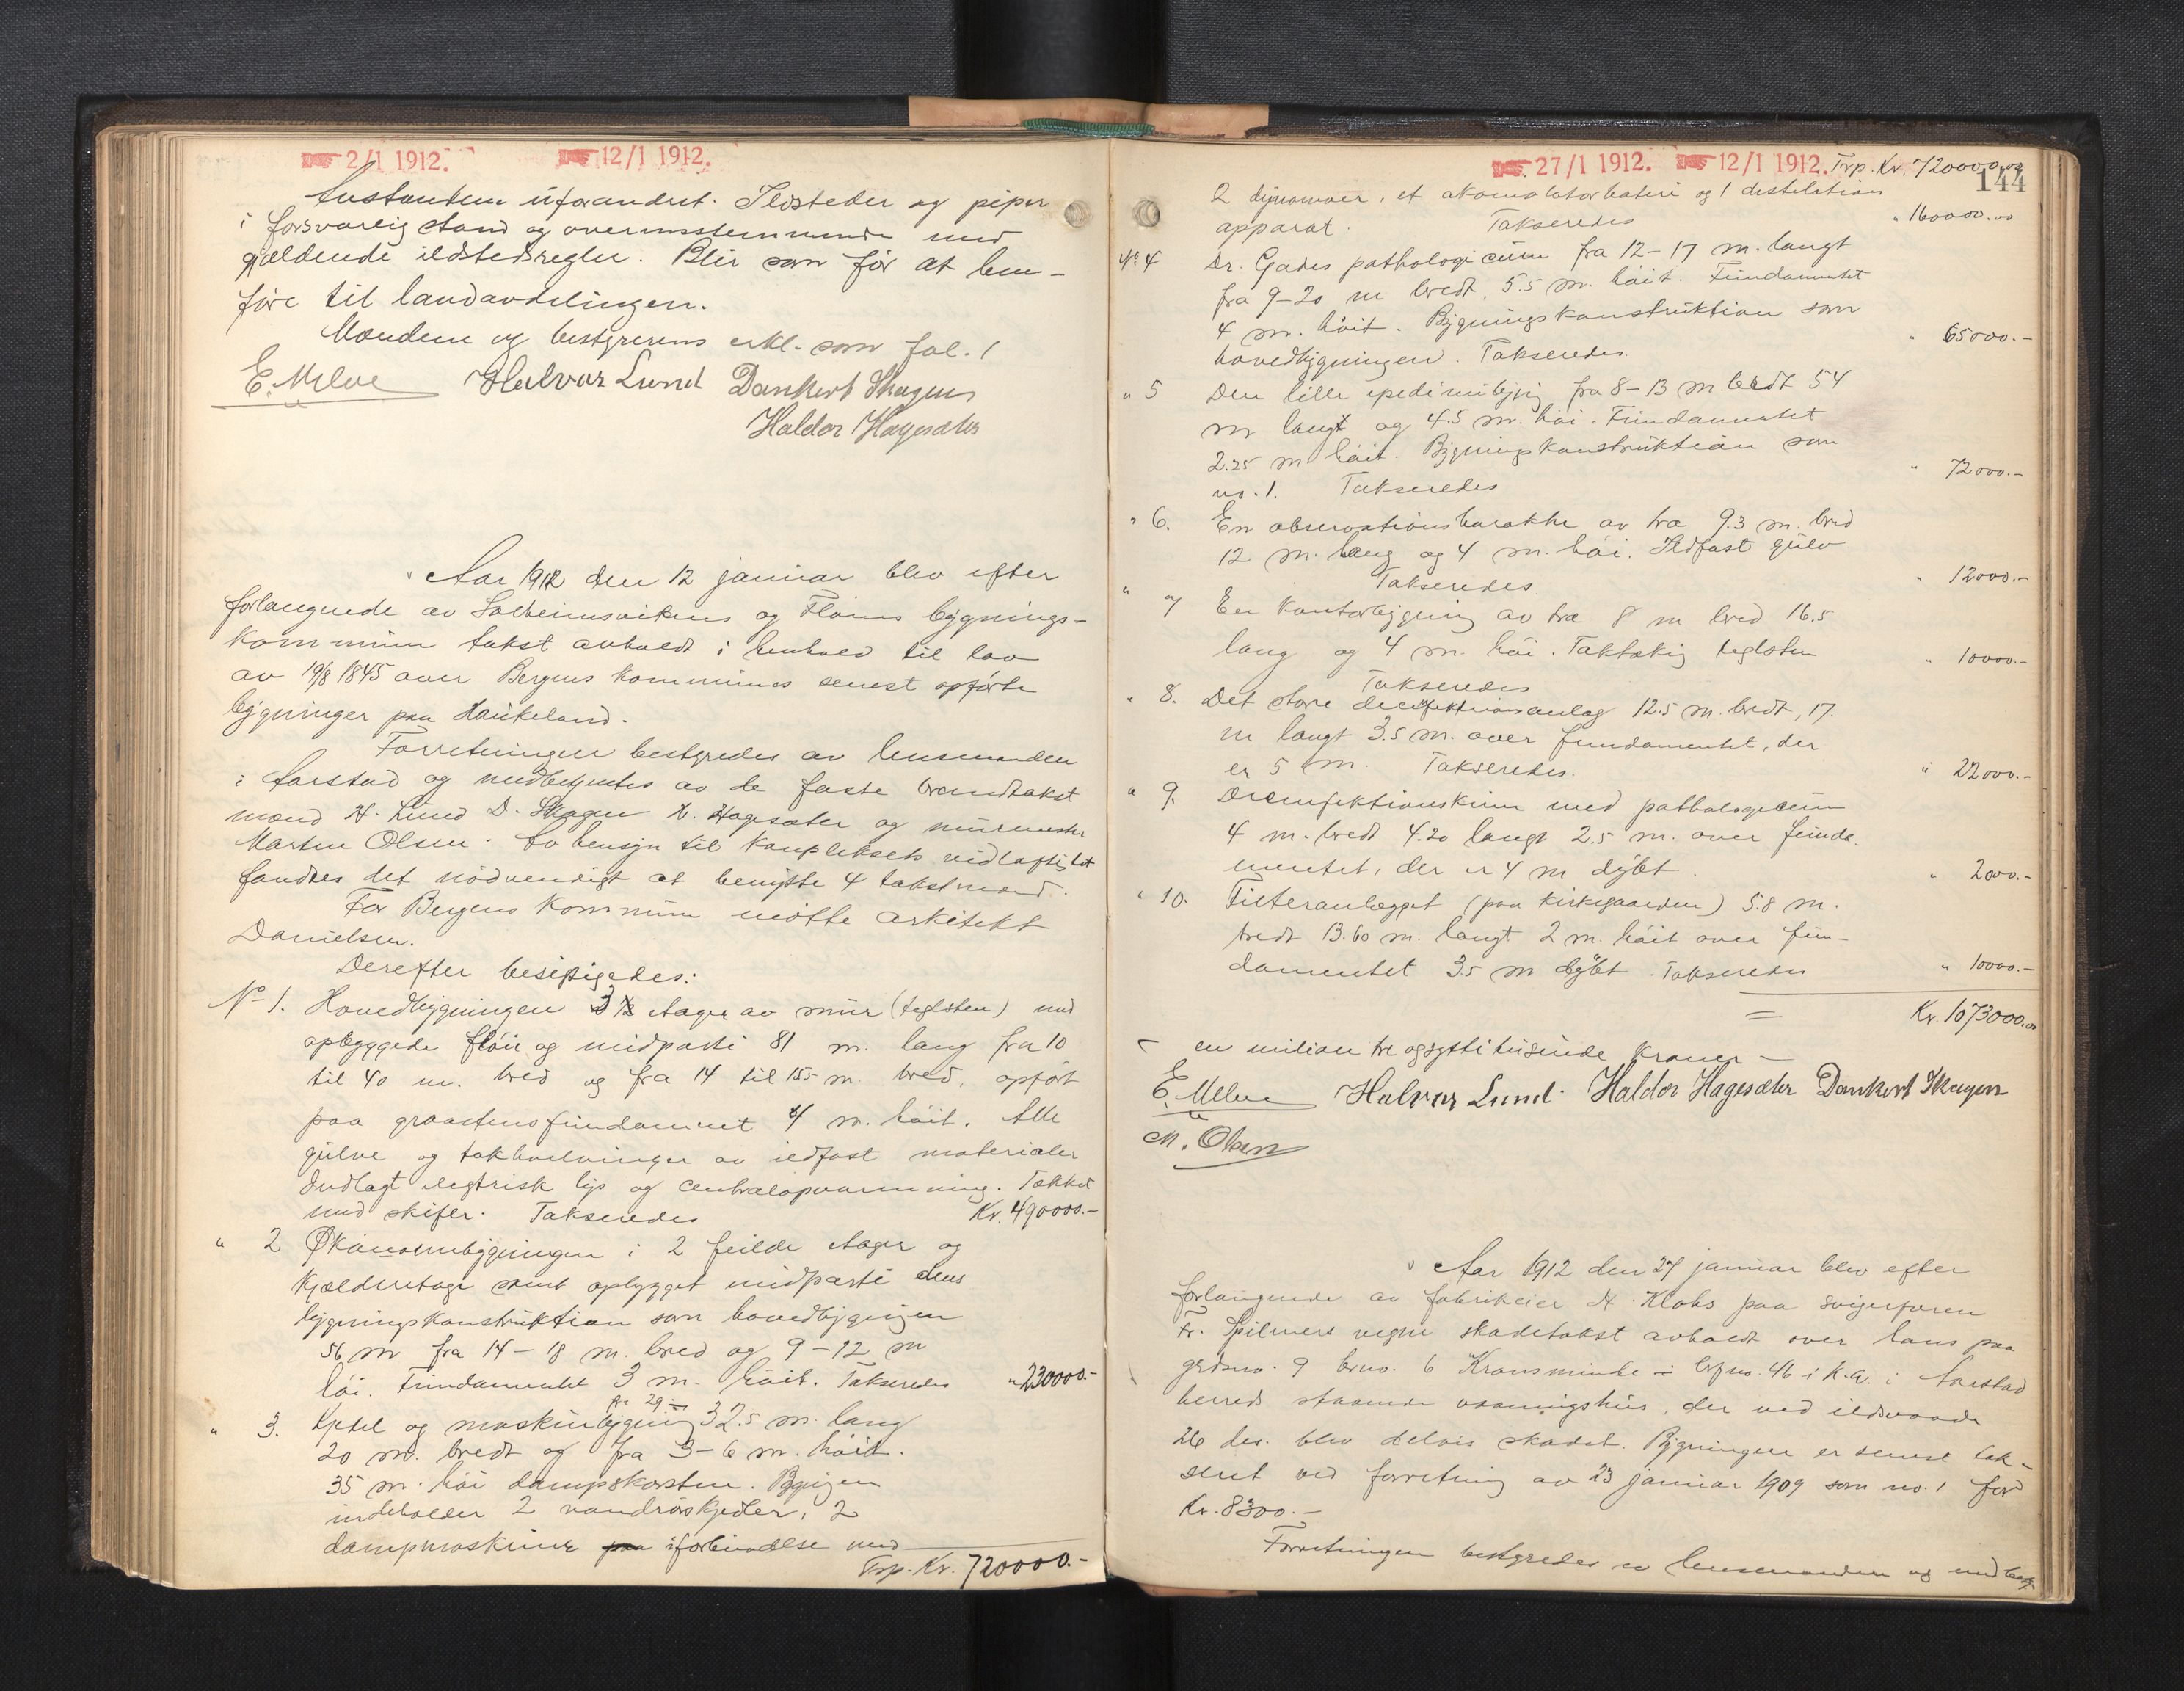 2/1 1912. 12/1 1912.
Avstanden uforandret. Ildsteder og piper
i forsvarlig stand og overensstemmende med
gjældende ildstedsregler. Blir som før at hen-
føre til landavdelingen.
Mændene og bestyrerens erkl. som fol. 1
E. Melve Halvar Lund Dankert Skagen
Haldor Hagesæter
Aar 1912 den 12 januar blev efter
forlangende av Solheimsvikens og Fløens bygnings-
kommun takst avholdt i henhold til lov
av 19/8 1845 over Bergens kommunes senest opførte
bygninger paa Haukeland.
Forretningen bestyredes av lensmanden
i Aarstad og medbetjentes av de faste brandtakst
mænd H. Lund D. Skagen H. Hagesæter og murmester
Martin Olsen. Av hensyn til kompleksets vidløftighet
fandtes det nödvendigt at benytte 4 takstmænd.
For Bergens kommun møtte arkitekt
Danielsen.
Derefter besigtigedes:
No 1. Hovedbygningen 3 ½ etager av mur (teglsten) med
opbyggede fløie og midparti 81 m. lang fra 10
til 40 m. bred og fra 14 til 155 m. bred, opført
paa graastensfundament 4 m. høit. Alle
gulve og takhvelvinger av ildfast materialer
Indlagt elegtrisk lys og centralopvarmning. Tækket
med skifer. Takseredes Kr. 490000.-
" 2 Økonomibygningen i 2 fulde etager og
kjælderetage samt opbygget midparti dens
bygningskonstruktion som hovedbygningen
56 m fra 14-18 m. bred og 9-12 m
høi. Fundamentet 3 m. høit. Takseredes "230000.-
" 3. Kjedel og maskinbygning 32.5 m. lang
20 m. bredt og fra 3-6 m. høit.
35 m. høi dampskorsten. Bygningen
indeholder 2 vandrørskjedler, 2
dampmaskiner paa i forbindelse med
Trp. Kr. 720000.-
27/1 1912. 12/1 1912. Trp. Kr. 720000.00
144
2 dynamoer, et akomolatorbatteri og 1 destilations
apparat. Takseredes " 160000.00
No 4 Dr. Gades pathologicum fra 12-17 m. langt
fra 9-20 m bredt, 5.5 m. høit. Fundamentet
4 m. høit. Bygningskonstruktion som
hovedbygningen. Takseredes. " 65000.-
" 5 Den lille epedimibygn fra 8-13 m bredt 54
m langt og 4.5 m. høi. Fundamentet
2.25 m høit. Bygningskonstruktion som
no. 1. Takseredes " 72000.-
" 6. En observationsbarakke av træ 9.3 m. bred
12 m. lang og 4 m. høi. Ildfast gulv
Takseredes " 12000.-
" 7 En kontorbygning av træ 8 m bred 16.5
lang og 4 m. høi. Taktækning teglsten
Takseredes " 10000.-
" 8. Det store desinfektionsanlæg 12.5 m. bredt, 17.
m langt 3.5 m. over fundamentet, der
er 5 m. Takseredes. " 22000.-
" 9. Desinfektionskum med pathologicum
4 m. bredt 4.20 langt 2.5 m. over funda-
mentet, der er 4 m dybt. " 2000.-
" 10. Filteranlægget (paa kirkegaarden) 5.8 m.
bredt 13.60 m. langt 2 m. høit over fun-
damentet 3.5 m dybt. Takseredes " 10000.-
Kr. 1073000.00
en milion tre og sytti tusinde kroner -
E. Melve Halvar Lund. Haldor Hagesæter Dankert Skagen
M. Olsen
Aar 1912 den 27 januar blev efter
forlangende av fabrikeier H. Klohs paa svigerfaren
Fr. Spilmers vegne skadetakst avholdt over hans paa
grdsno. 9 brno. 6 Kransminde i brfno. 46 i k.a. i Aarstad
herred staaende vaaningshus, der ved ildsvaade
26 des. blev delvis skadet. Bygningen er senest tak-
seret ved forretning av 23 januar 1909 som no. 1 for
Kr. 8300.-
Forretningen bestyredes av lensmanden og medbetj